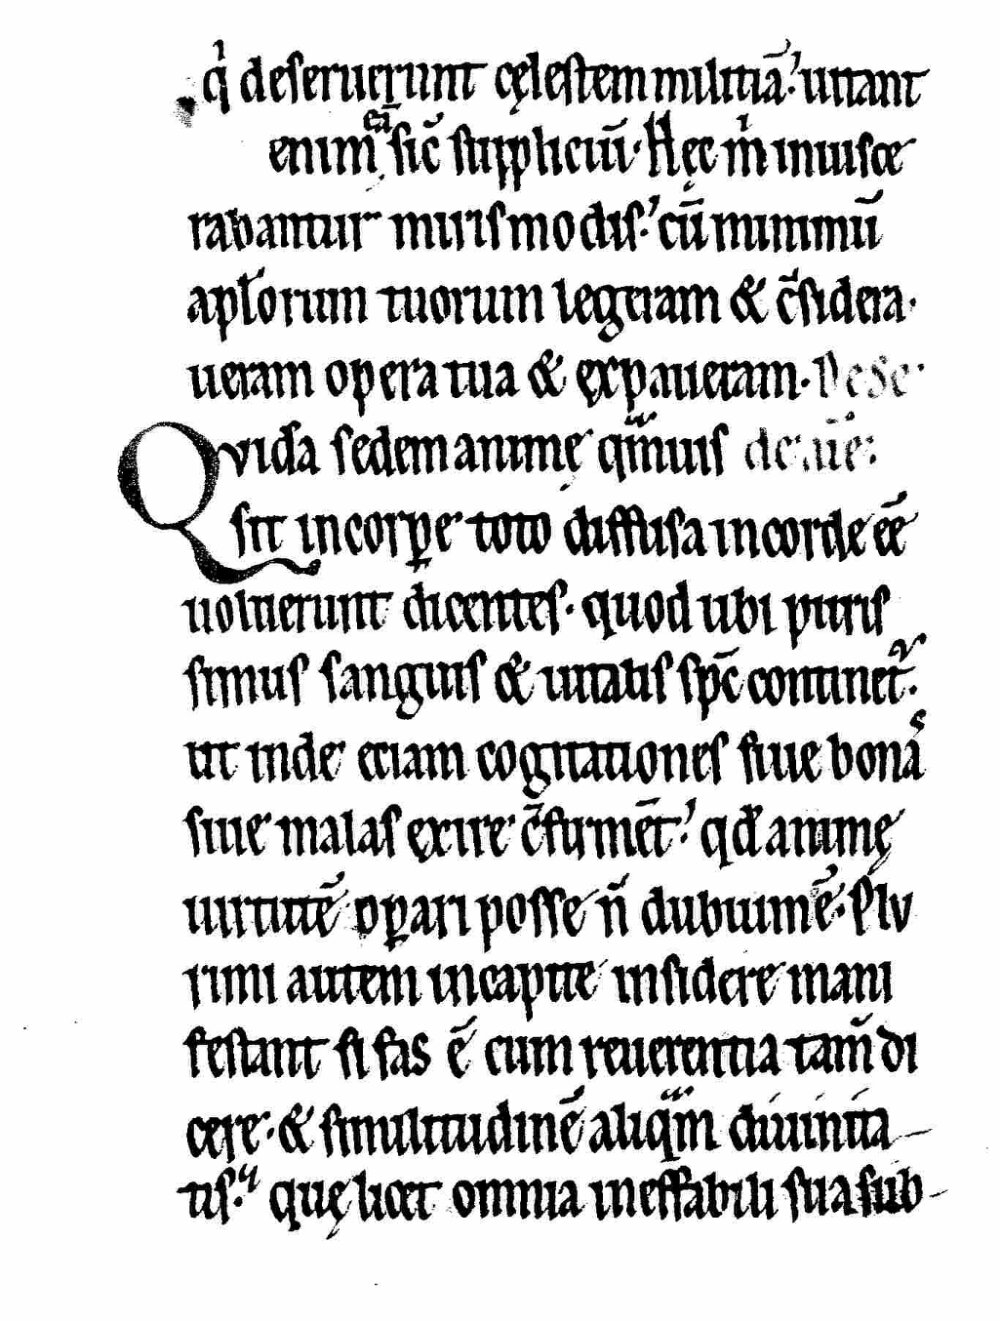 q̇ deseruerunt cęlestem militiā. uitant
enim eā sic̄ suppliciū. Hęc ṁ inuisce
rabantur miris modis. cū minimū
apl̄orum tuorum legeram & c̄sidera
ueram opera tua & expaueram. De Se
Quidā sedem animę qmuis de
sit incorpe toto diffusa in corde eē
uoluerunt dicentes. quod ubi puris
simus sanguis & uitalis spc̄ continet.
ut inde etiam cogitationes siue bonas
siue malas exire c̄firmēt. qd̄ animę
uirtutē opari posse n̄ dubium ē. Plu
rimi autem in capite insidere mani
festant si fas ē cum reuerentia tam̄ di
cere. & similitudinē aliqm diuinita
tis. quę licet omnia ineffabili sua sub-